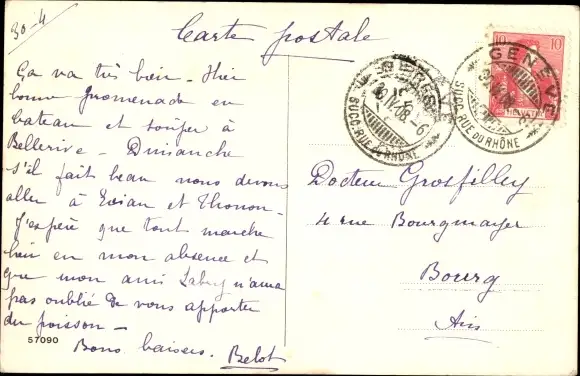 30-4
Carte postale
Ça va très bien - Hier
bonne promenade en
bateau et souper à
Bellerive - Dimanche
s'il fait beau nous devons
aller à Evian et Thonon -
J'espère que tout marche
bien en mon absence et
que mon ami n'aura
pas oublié de vous apporter
du poisson -
Bons baisers. Belot
57090
10 10
GENÈVE
SUCC. RUE DU RHÔNE
GENÈVE
SUCC. RUE DU RHÔNE
Docteur Grosfilley
4 rue Bourgmayer
Bourg
Ain